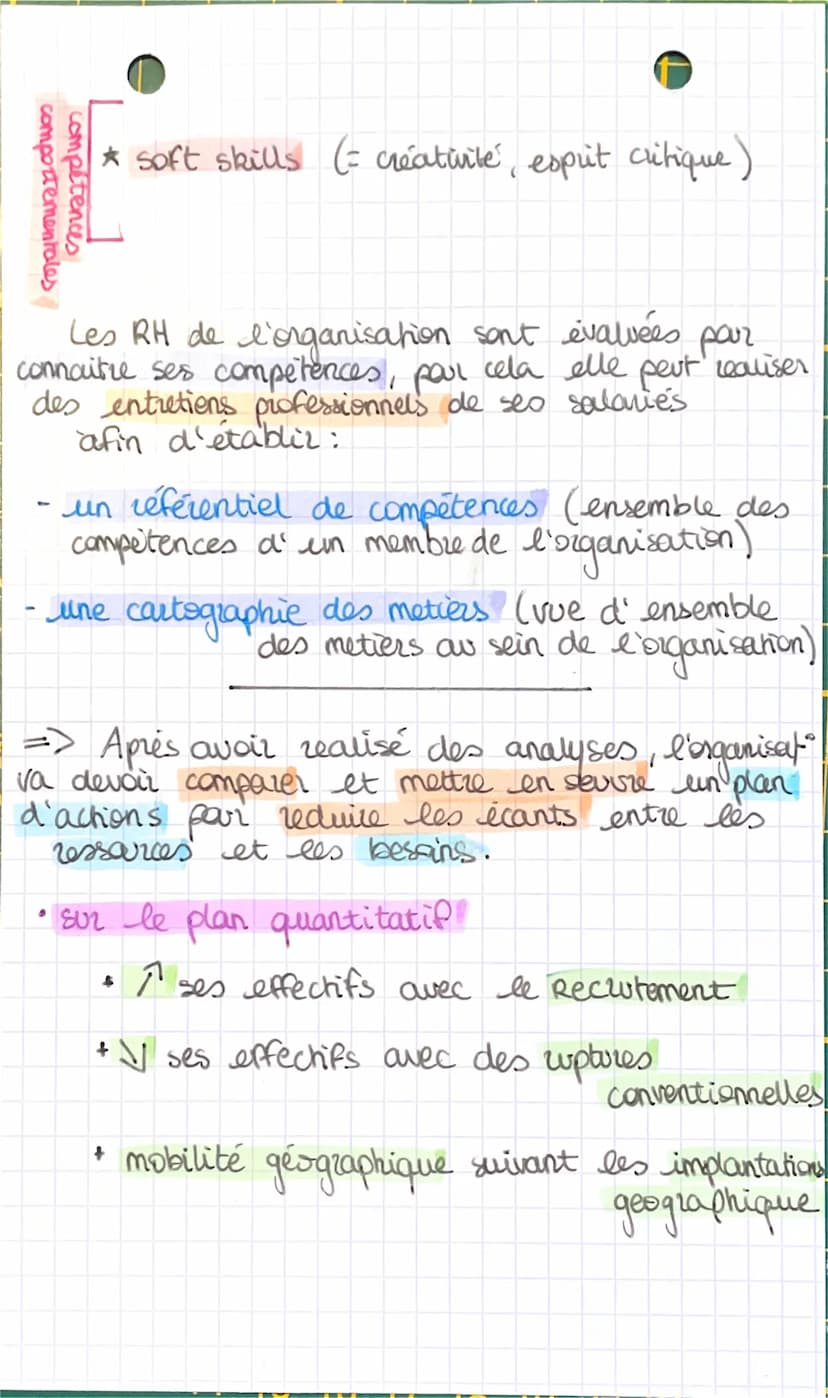 compétences
comportementales
★ soft skills (= créativité, esprit critique)
Les RH de l'organisation sont évaluées par
connaitre ses compétences, par cela elle peut realiser
des entretiens professionnels de ses salariés
afin d'établir :
- un référentiel de compétences (ensemble des
compétences d' un membre de l'organisation)
- une cartographie des metiers (vue d' ensemble
des metiers au sein de l'organisation)
=> Après avoir realisé des analyses, l'organisat°
va devoir comparer et mettre en oeuvre un plan
d'actions par reduire les écarts entre les
ressources et les besoins.
• sur le plan quantitatif
• ↗ ses effectifs avec le Recrutement
+ ↘ ses effectifs avec des ruptures
conventionnelles
+ mobilité géographique suivant les implantations
geographique